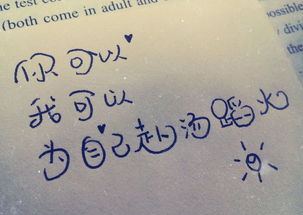 the test co
(both come in adult and
possible
divi
the
你可以
我可以
为自己赴汤蹈火